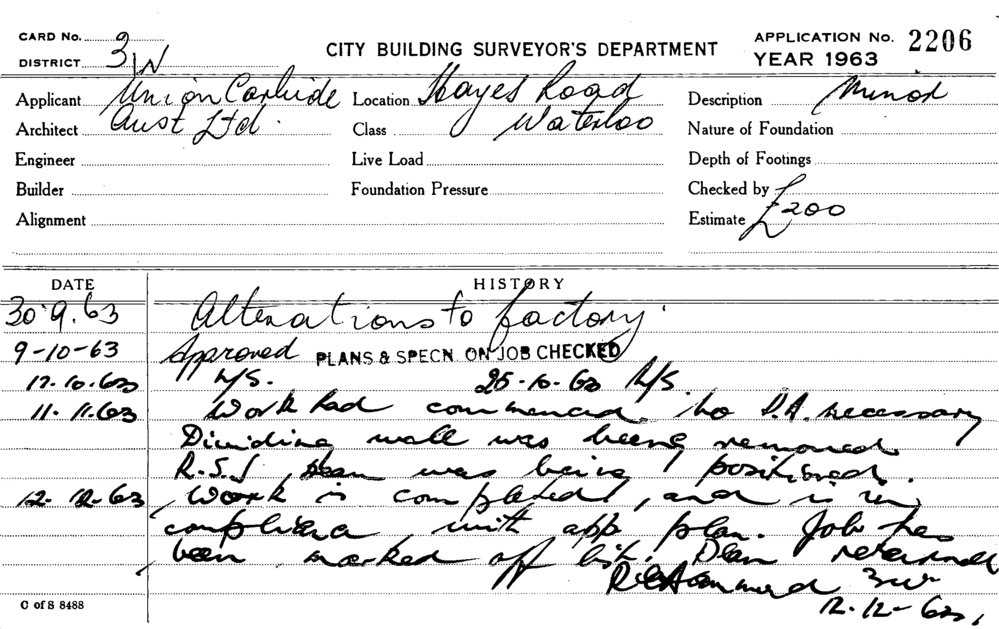 CARD No. 3
DISTRICT. 3W
CITY BUILDING SURVEYOR'S DEPARTMENT
APPLICATION No. 2206
YEAR 1963
Applicant Union Carbide Location Hayes Road Description Minor
Architect Aust Ltd. Class Waterloo Nature of Foundation
Engineer Live Load Depth of Footings
Builder Foundation Pressure Checked by
Alignment Estimate £200
DATE HISTORY
30.9.63 Alterations to factory.
9-10-63 Approved PLANS & SPECN. ON JOB CHECKED
17.10.63 W/S. 25.10.63 W/S
11.11.63 Work had commenced. No D.A. necessary
Dividing wall was being removed
R.S.J was being positioned.
12-12-63 Work is completed, and is in
compliance with app. plan. Job has
been marked off list. Plan returned
3W
12-12-63.
C of S 8488